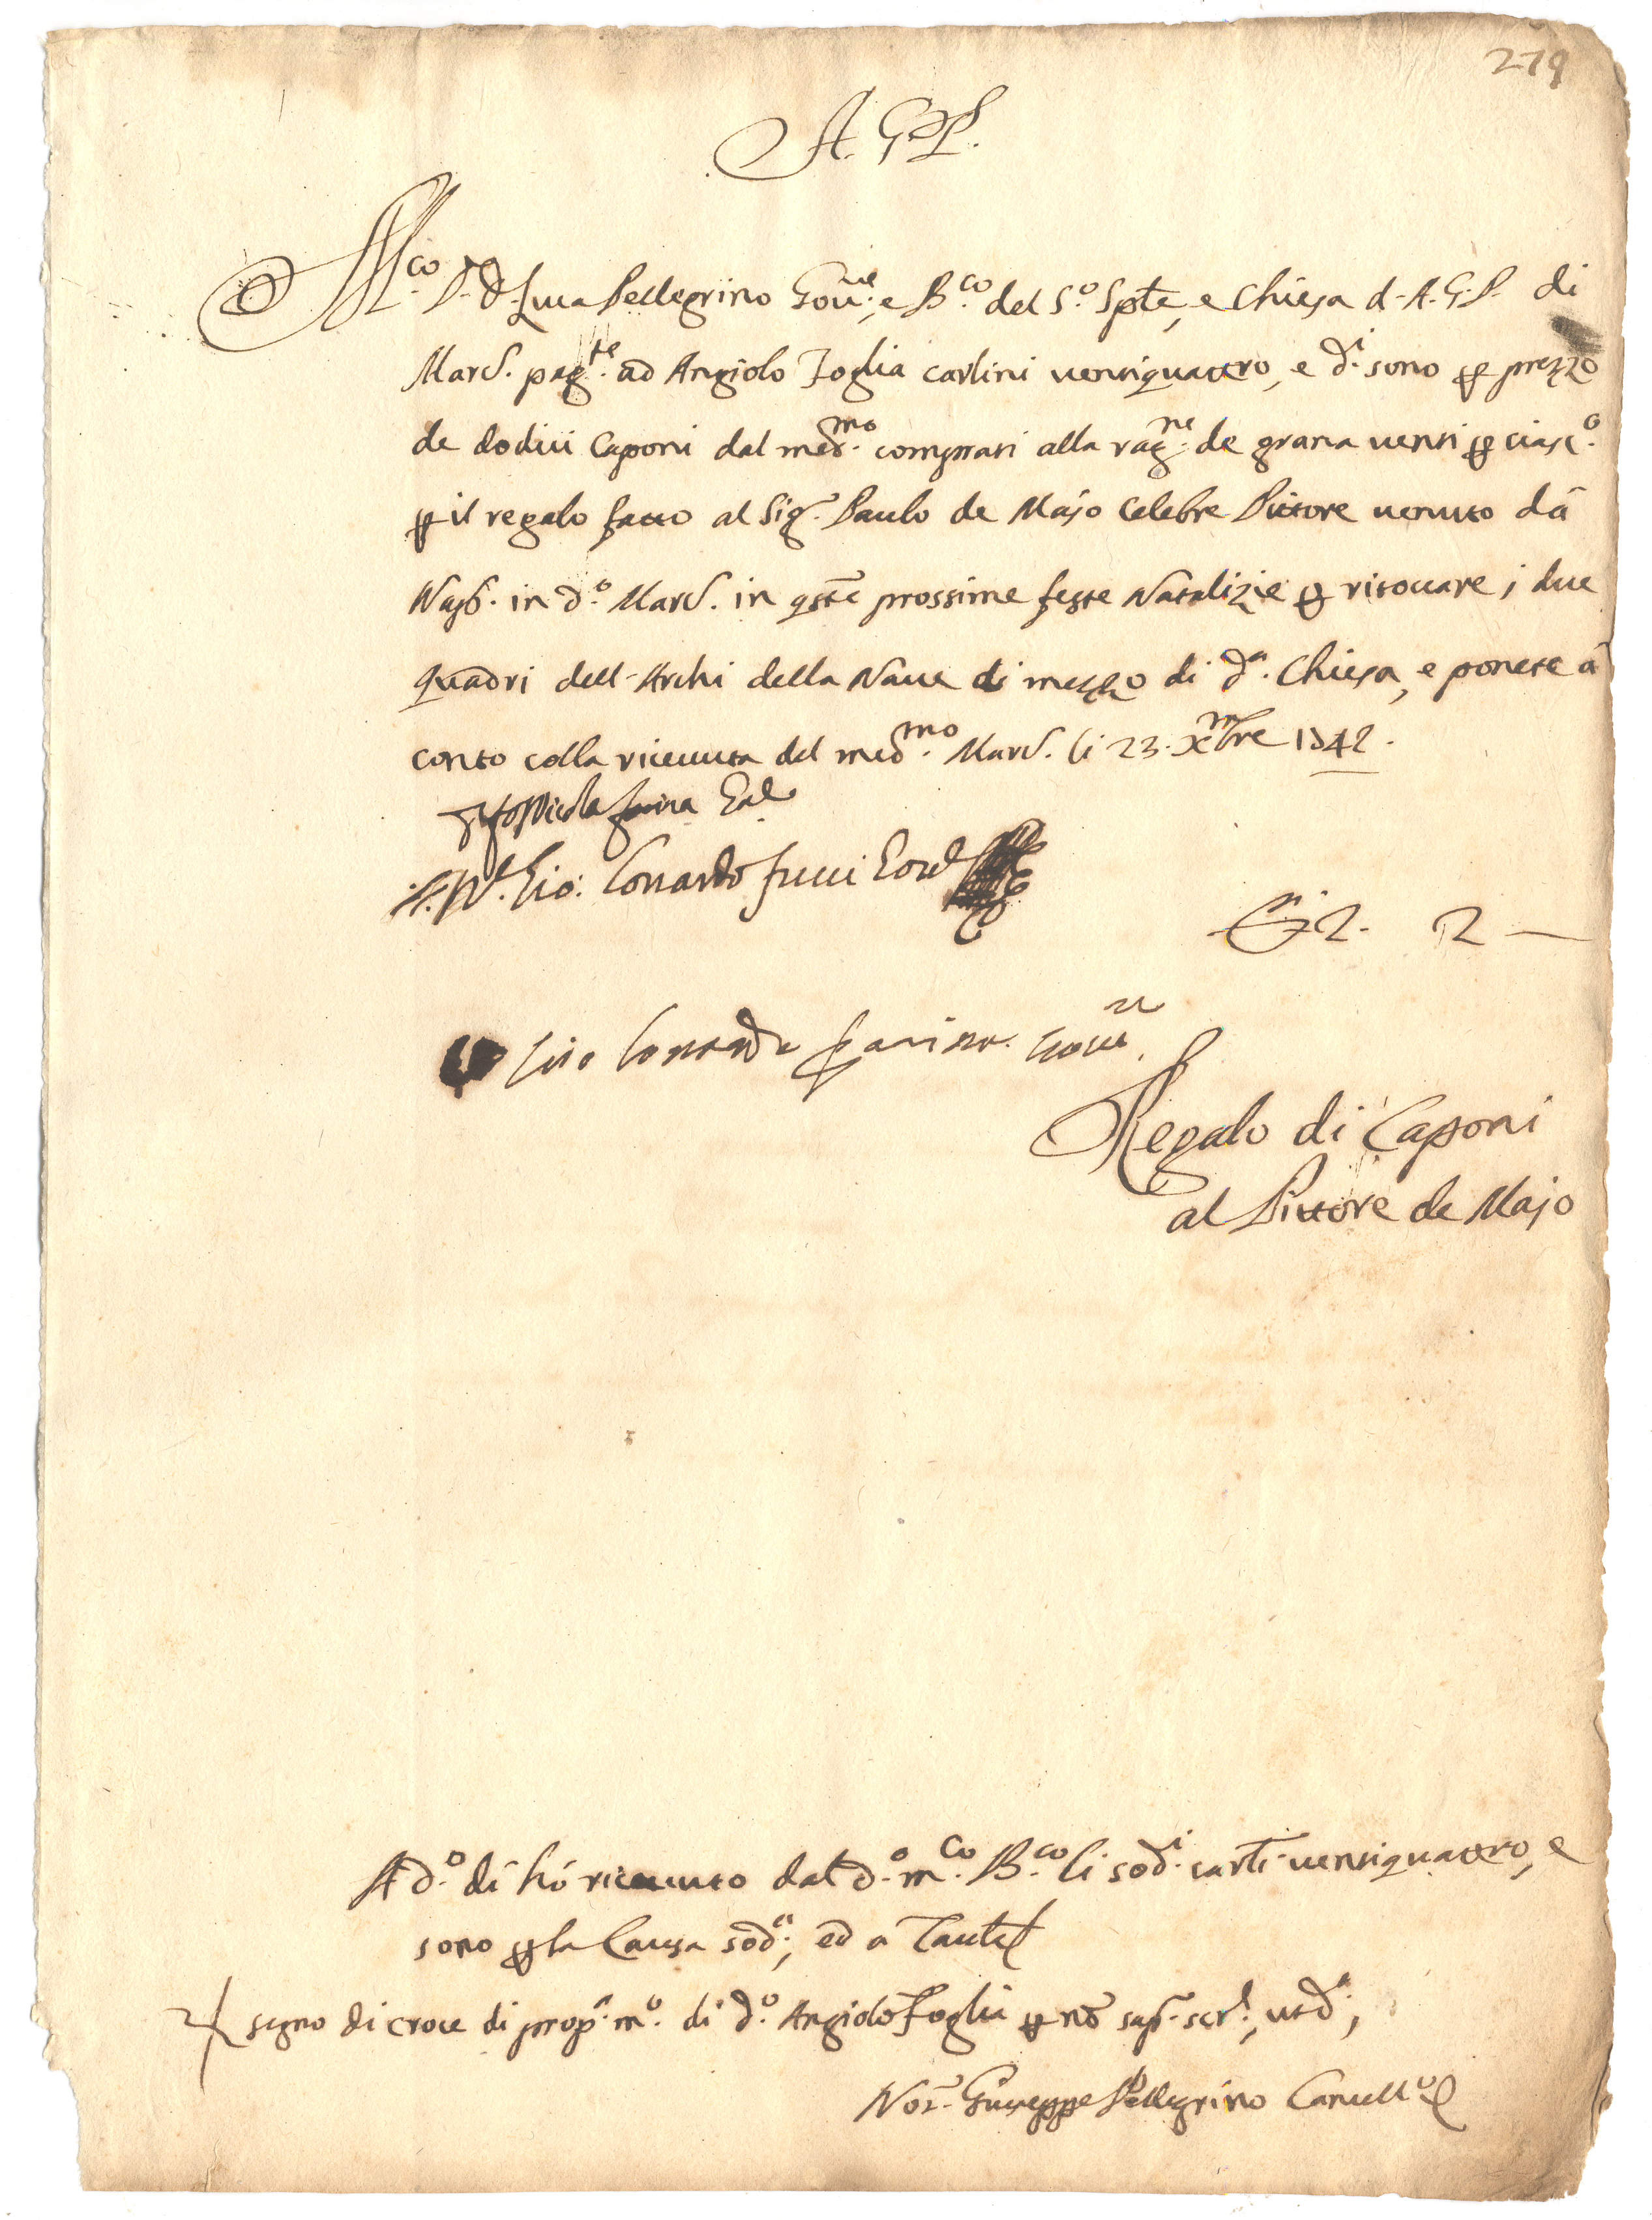 279
A. G. P.
M.co D. Luca Pellegrino Gov.re, e B.co del S.o Spte, e Chiesa d. A. G. P. di
Marc. pag.te ad Angiolo Foglia carlini ventiquattro, e d.i sono per prezzo
de dodici Caponi dal med.mo comprati alla rag.ne de grana venti per ciasc.o
per il regalo fatto al Sig. Paulo de Majo Celebre Pittore venuto dà
Nap. in d.o Marc. in qste prossime feste Natalizie per ritoccare i due
quadri dell'Archi della Nave di mezzo di d.a Chiesa, e ponete à
conto colla ricevuta del med.mo Marc. li 23. Xmbre 1742.
Nicola Farina
Gio: Conardo
D.i 2. 2 —
Gio Conardo Farina Gov.re
Regalo di Caponi
al Pittore de Majo
A d.o dì hò ricevuto dal d.o m.co B.co li sod.i carli ventiquattro, e
sono per la Causa sod.a, ed a Cautel
segno di croce di prop.a m.o di d.o Angiolo Foglia per nò sap. scr., ut d.a,
Not. Giuseppe Pellegrino Cancell.o